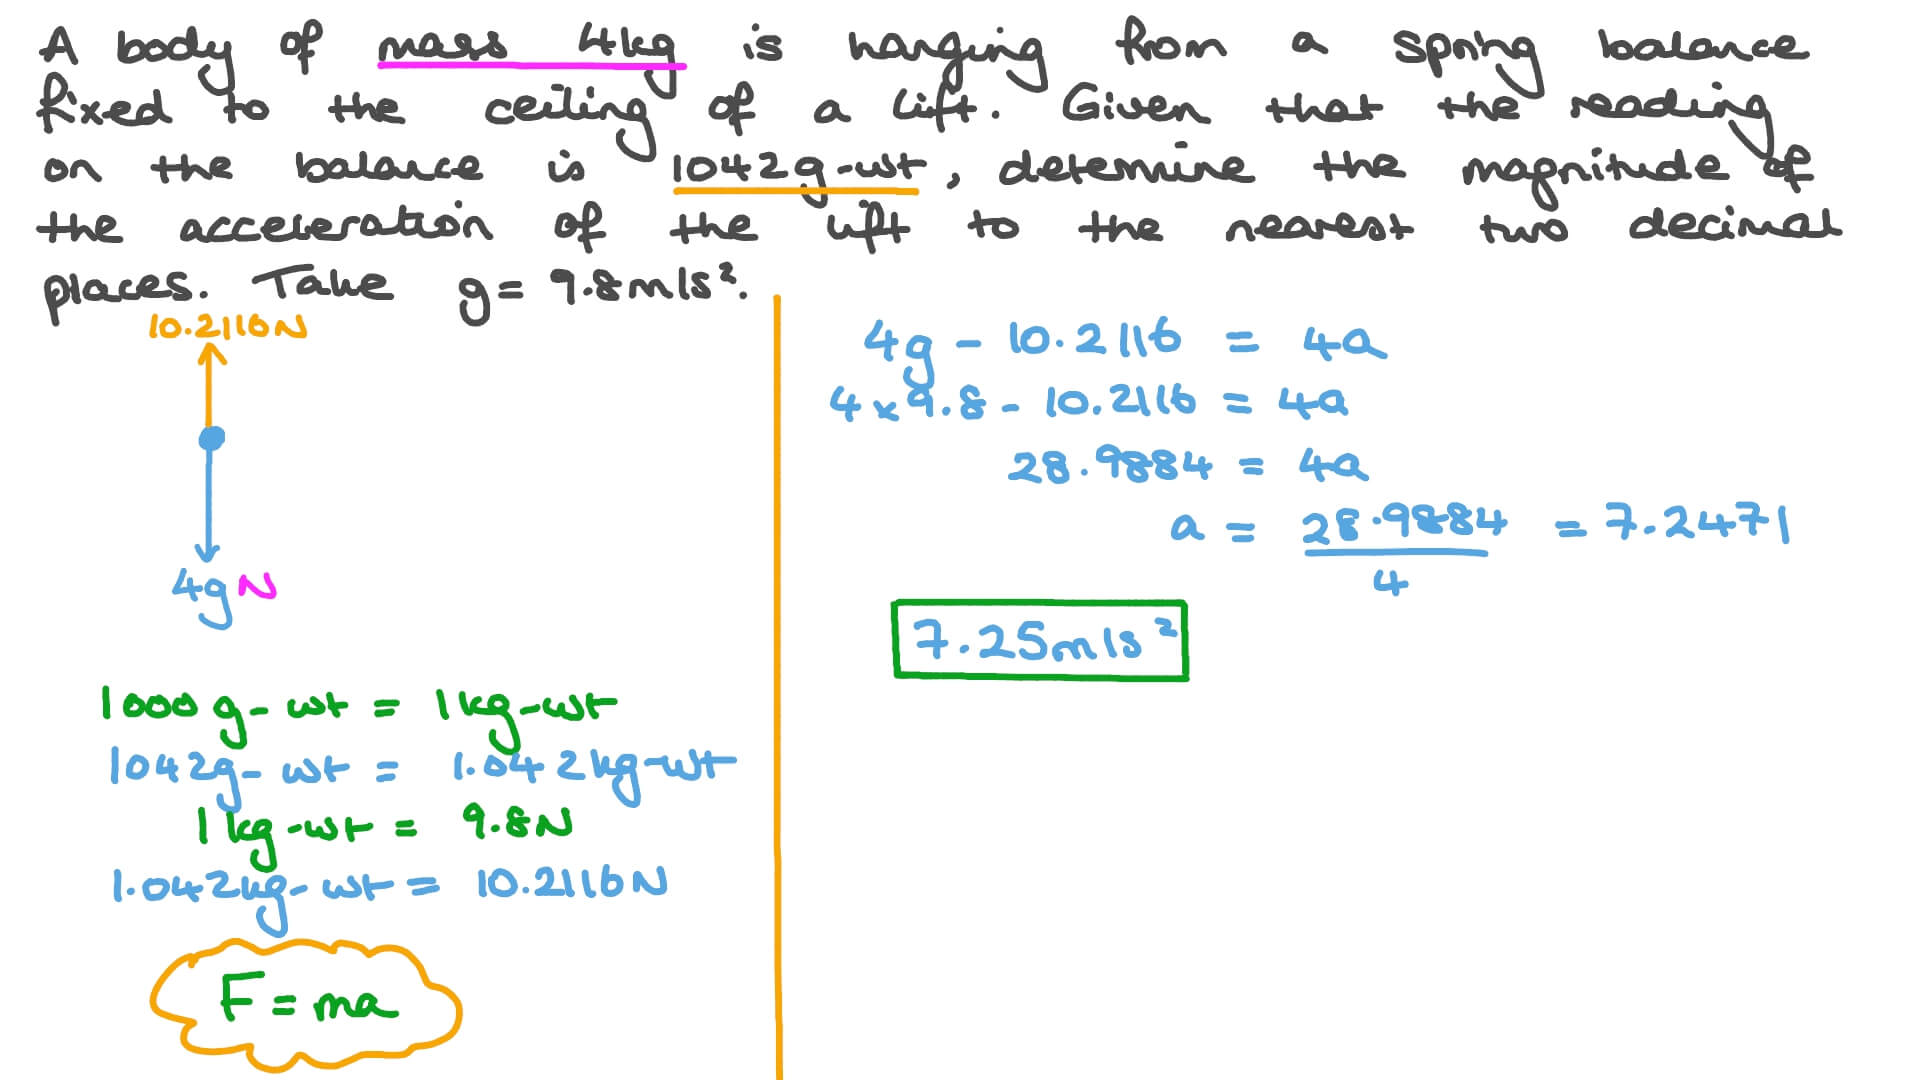 A body of mass 4kg is hanging from a spring balance
fixed to the ceiling of a lift. Given that the reading
on the balance is 1042g-wt, determine the magnitude of
the acceleration of the lift to the nearest two decimal
places. Take g = 9.8m/s².
10.2116N
4gN
1000g-wt = 1kg-wt
1042g-wt = 1.042kg-wt
1kg-wt = 9.8N
1.042kg-wt = 10.2116N
F = ma
4g - 10.2116 = 4a
4 x 9.8 - 10.2116 = 4a
28.9884 = 4a
a = 28.9884 = 7.2471
4
7.25m/s²